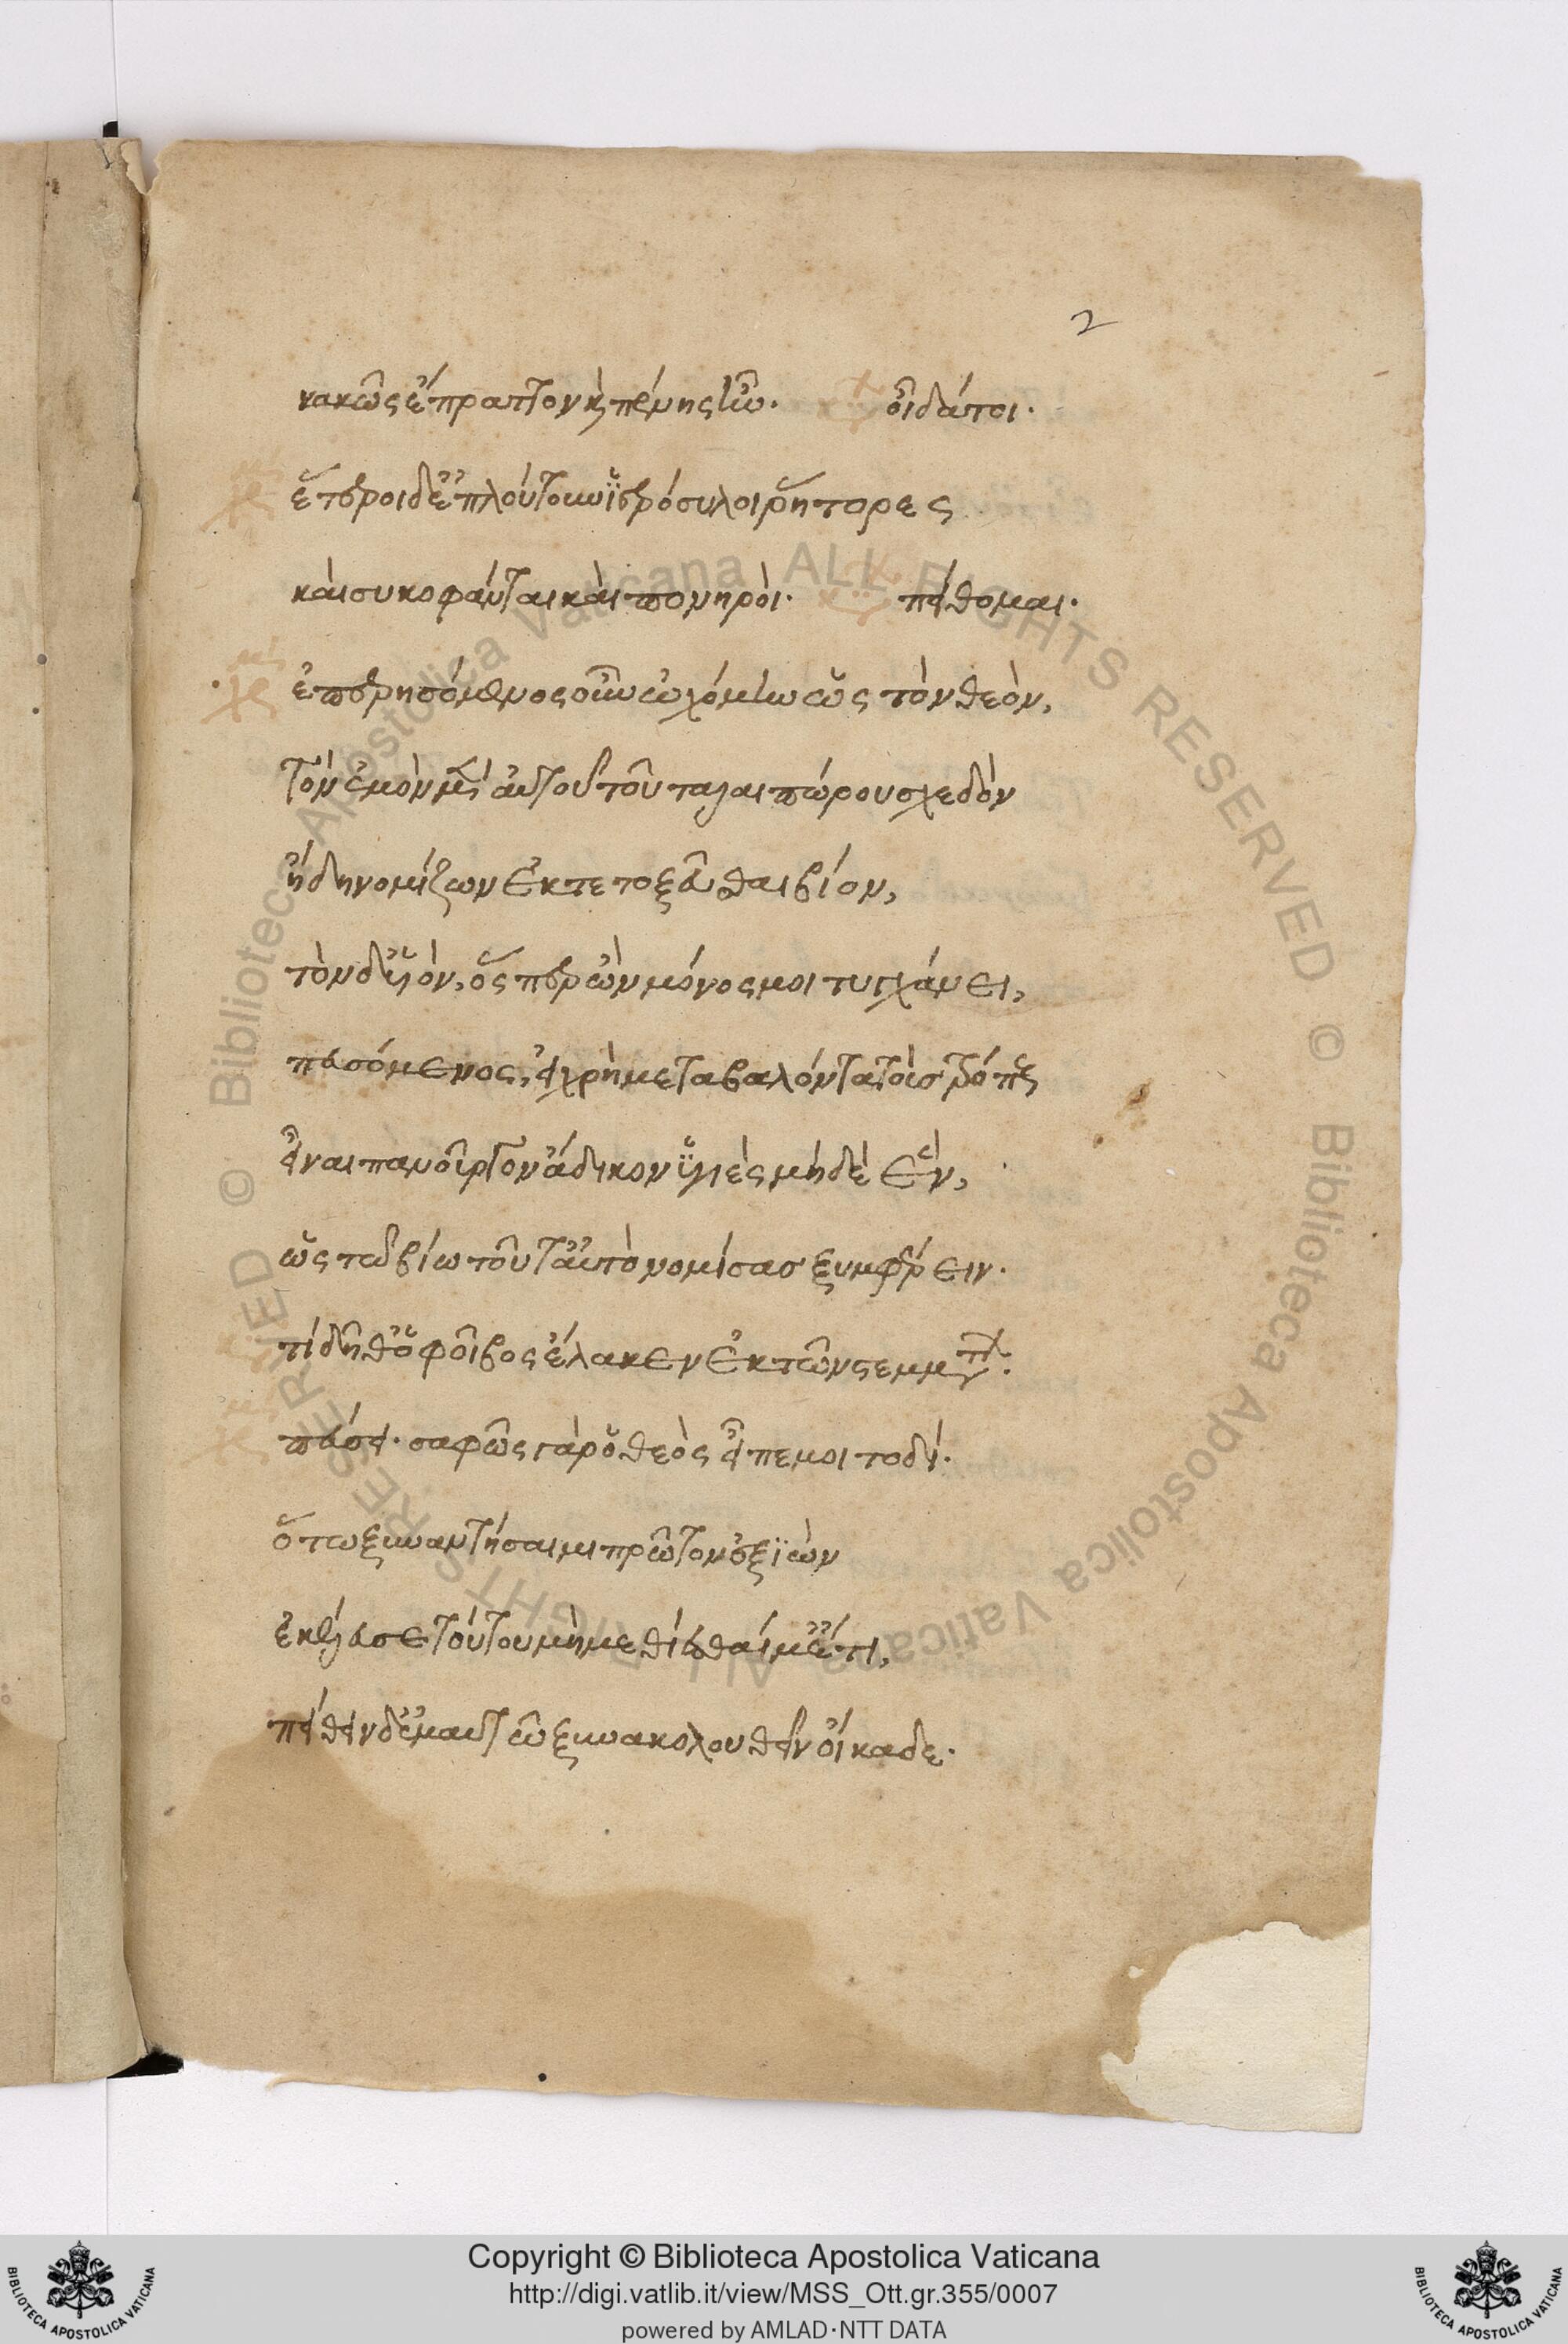 2
κακῶς ἔπραττον κ πένης ἦν. κα οἶδά τοι.
χρε ἕτεροι δ' ἐπλούτουν ἱερόσυλοι ῥήτορες
καὶ συκοφάνται καὶ πονηροί. κα πείθομαι.
χρε ἐπερησόμενος οὖν ᾠχόμην ὡς τὸν θεόν,
τὸν ἐμὸν μὲν αὐτοῦ τοῦ ταλαιπώρου σχεδὸν
ἤδη νομίζων ἐκτετοξεῦσθαι βίον,
τὸν δ' υἱόν, ὅσπερ ὢν μόνος μοι τυγχάνει,
πευσόμενος, εἰ χρὴ μεταβαλόντα τοὺς τρόπους
εἶναι πανοῦργον ἄδικον ὑγιὲς μηδὲ ἕν,
ὡς τῷ βίῳ τοῦτ' αὐτὸ νομίσας ξυμφέρειν.
κα τί δῆθ' ὁ φοῖβος ἔλακεν ἐκ τῶν στεμμάτων.
χρε πεύσει. σαφῶς γὰρ ὁ θεὸς εἶπέ μοι τοδί.
ὅτῳ ξυναντήσαιμι πρῶτον ἐξιὼν
ἐκέλευσε τούτου μὴ μεθίεσθαί μ' ἔτι,
πείθειν δ' ἐμαυτῷ ξυνακολουθεῖν οἴκαδε.
Copyright © Biblioteca Apostolica Vaticana
http://digi.vatlib.it/view/MSS_Ott.gr.355/0007
powered by AMLAD·NTT DATA
BIBLIOTECA APOSTOLICA VATICANA
BIBLIOTECA APOSTOLICA VATICANA
© Biblioteca Apostolica Vaticana ALL RIGHTS RESERVED
© Biblioteca Apostolica Vaticana ALL RIGHTS RESERVED